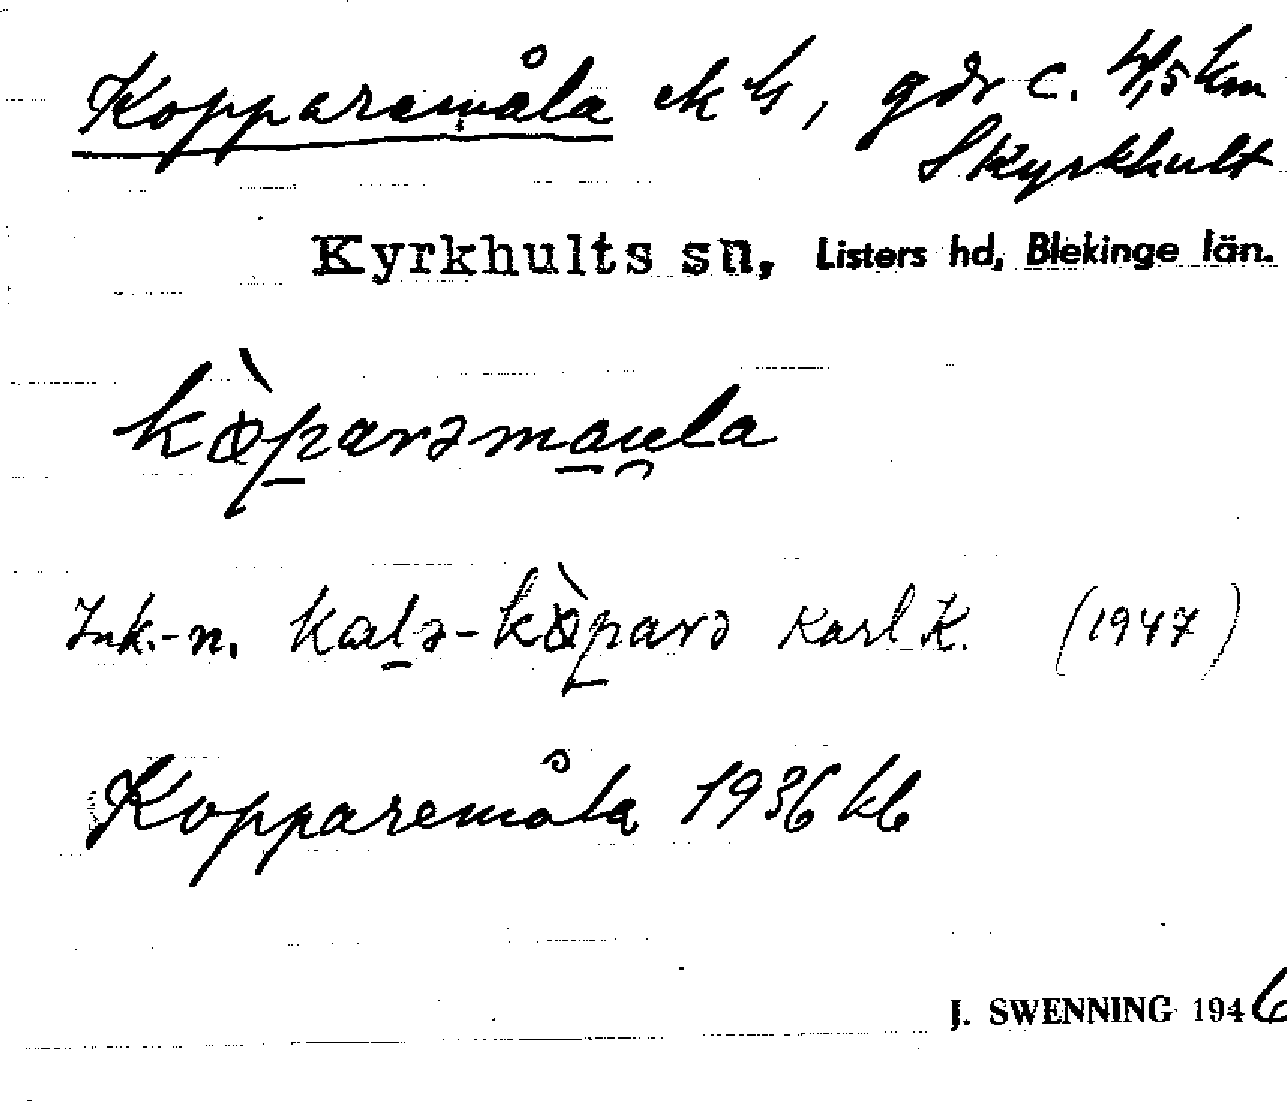 Kopparemåla ek ¼, gdr c. 4,5 km
S Kyrkhult
Kyrkhults sn, Listers hd, Blekinge län.
kòparəmau̯la
Ink.-n. Kalə-kòparə Karl K. (1947)
Kopparemåla 1936 kb
J. SWENNING 1946